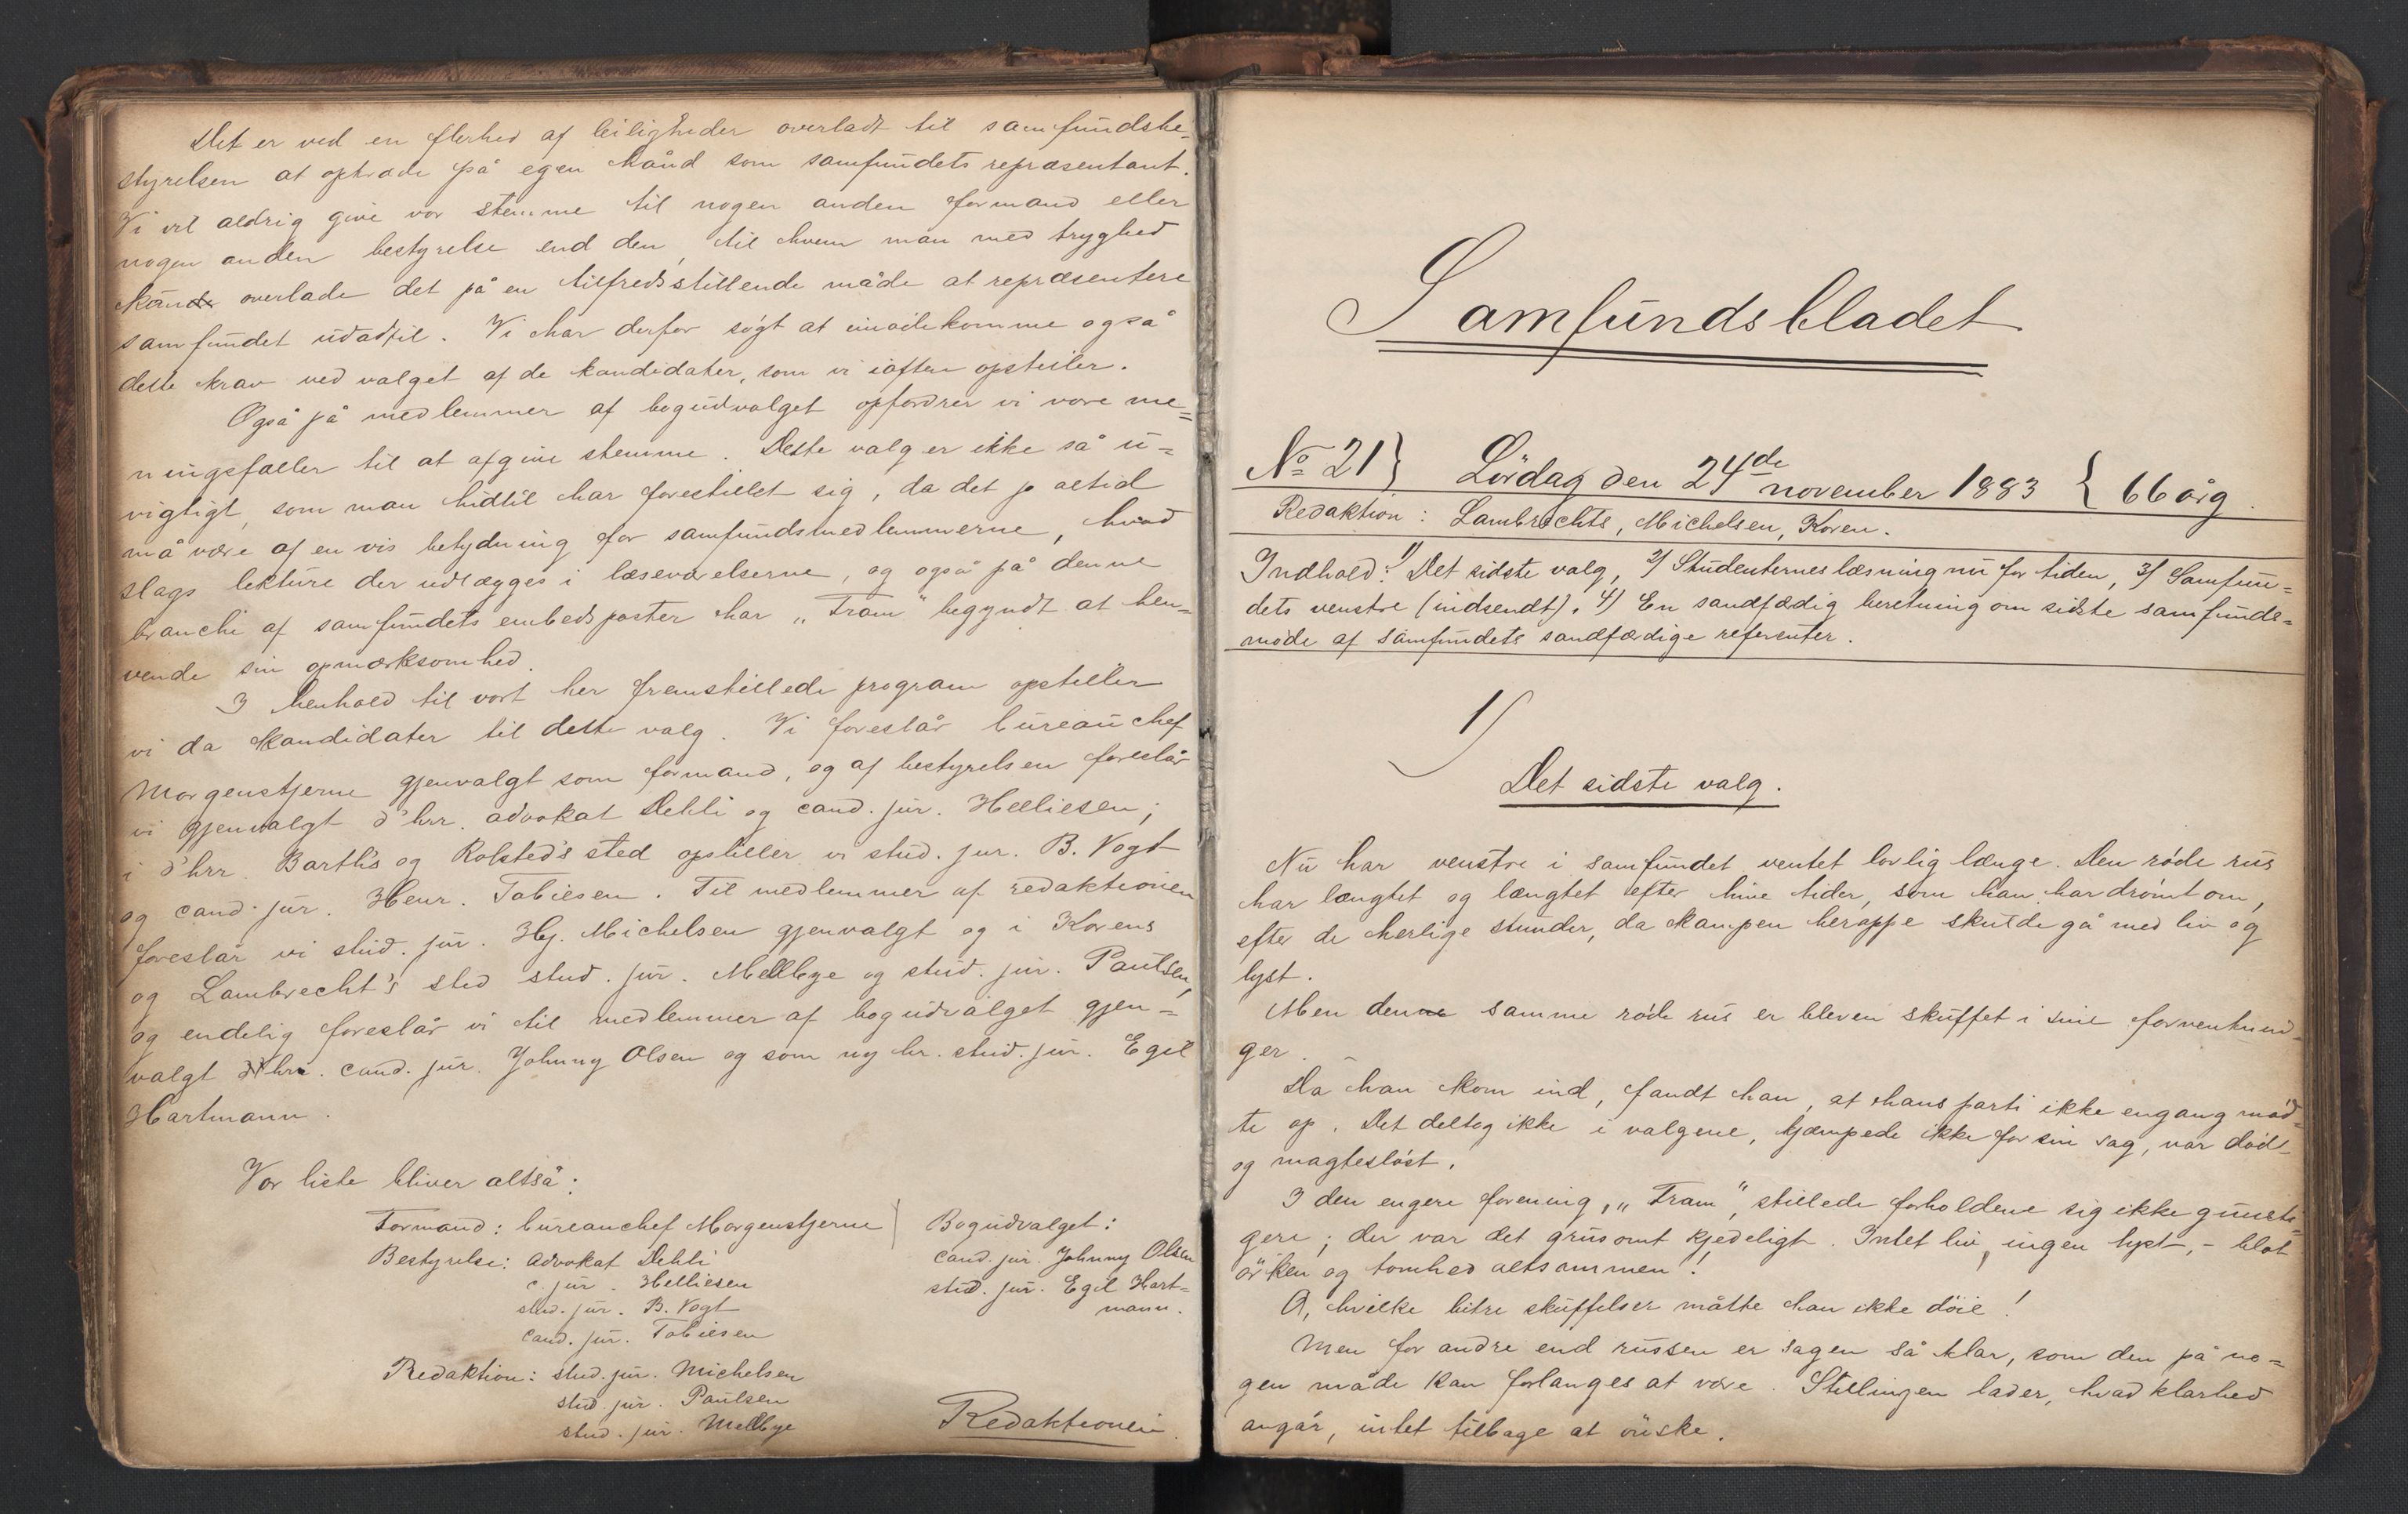 Det er ved en flerhed af leiligheder overladt til samfundsbe-
styrelsen at optræde på egen hånd som samfundets repræsentant.
Vi vil aldrig give vor stemme til nogen anden formand eller
nogen anden bestyrelse end den, til hvem man med tryghed
kan overlade det på en tilfredsstillende måde at repræsentere
samfundet udadtil. Vi har derfor søgt at imødekomme også
dette krav ved valget af de kandidater, som vi iaften opstiller.
Også på medlemmer af bogudvalget opfordrer vi vore me=
ningsfæller til at afgive stemme. Dette valg er ikke så u=
vigtigt, som man hidtil har forestillet sig, da det jo altid
må være af en vis betydning for samfundsmedlemmerne, hvad
slags lekture der udlægges i læseværelserne, og også på denne
branche af samfundets embedsposter har "Fram" begyndt at hen=
vende sin opmærksomhed.
I henhold til vort her fremstillede program opstiller
vi da kandidater til dette valg. Vi foreslår bureauchef
Morgenstjerne gjenvalgt som formand, og af bestyrelsen foreslår
vi gjenvalgt d'hrr. advokat Dehli og cand. jur. Helliesen;
i d'hrr. Barth's og Rolsted's sted opstiller vi stud. jur. B. Vogt
og cand. jur. Henr. Tobiesen. Til medlemmer af redaktionen
foreslår vi stud. jur. Hj. Michelsen gjenvalgt og i Korens
og Lambrecht's sted stud. jur. Mellbye og stud. jur. Paulsen,
og endelig foreslår vi til medlemmer af bogudvalget gjen=
valgt hr. cand. jur. Johnny Olsen og som ny hr. stud. jur. Egil
Hartmann.
Vor liste bliver altså:
Formand: bureauchef Morgenstjerne
Bestyrelse: advokat Dehli
c. jur. Helliesen
stud. jur. B. Vogt
cand. jur. Tobiesen
Redaktion: stud. jur. Michelsen
stud. jur. Paulsen
stud. jur. Mellbye
Bogudvalget:
cand. jur. Johnny Olsen
stud. jur. Egil Hart=
mann.
Redaktionen.
Samfundsbladet
No 21} Lørdag den 24de november 1883 { 66 årg.
Redaktion: Lambrechts, Michelsen, Koren.
Indhold: 1) Det sidste valg, 2) Studenternes læsning nu for tiden, 3) Samfun=
dets venstre (indsendt). 4) En sandfædig beretning om sidste samfunds=
møde af samfundets sandfædige referenter.
1)
Det sidste valg.
Nu har venstre i samfundet ventet lovlig længe. Den røde rus
har længtet og længtet efter hine tider, som han har drømt om,
efter de herlige stunder, da kampen heroppe skulde gå med liv og
lyst.
Men den samme røde rus er bleven skuffet i sine forventnin=
ger.
Da han kom ind, fandt han, at hans parti ikke engang mød=
te op. Det deltog ikke i valgene, kjæmpede ikke for sin sag, var dødt
og magtesløst.
I den engere forening, "Fram", stillede forholdene sig ikke gunsti=
gere; der var det grusomt kjedeligt. Intet liv, ingen lyst, - blot
ørken og tomhed altsammen!
A, hvilke bitre skuffelser måtte han ikke døie!
Men for andre end russen er sagen så klar, som den på no=
gen måde kan forlanges at være. Stillingen lader, hvad klarhed
angår, intet tilbage at ønske.